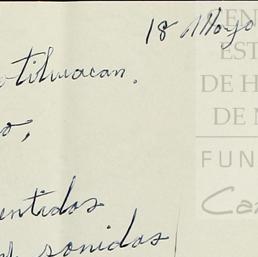 18 Mayo
otihuacan.
o,
entidos
sonidos
EN
EST
DE H
DE M
FUN
Ca